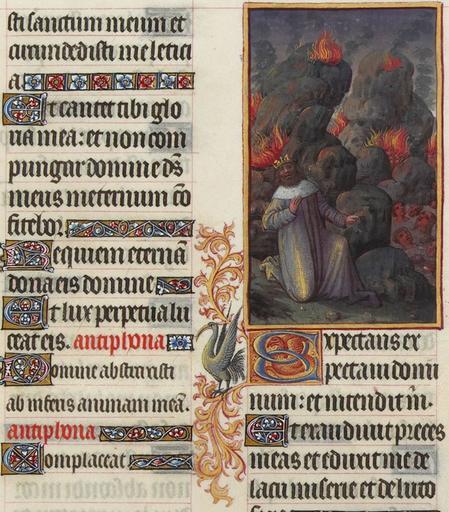 sti sanctum meum et
circumdedisti me letici
a.
Et cantet tibi glo
ria mea: et non com
pungar domine ds
meus ineternum co
fitebor.
Requiem eternam
dona eis domine
Et lux perpetua lu
ceat eis. antiphona
Domine abstraxisti
ab inferis animam meā.
antiphona
Complaceat
Expectans ex
pectaui domi
num: et intendit m.
Et exaudiuit preces
meas et eduxit me de
lacu miserie et de luto